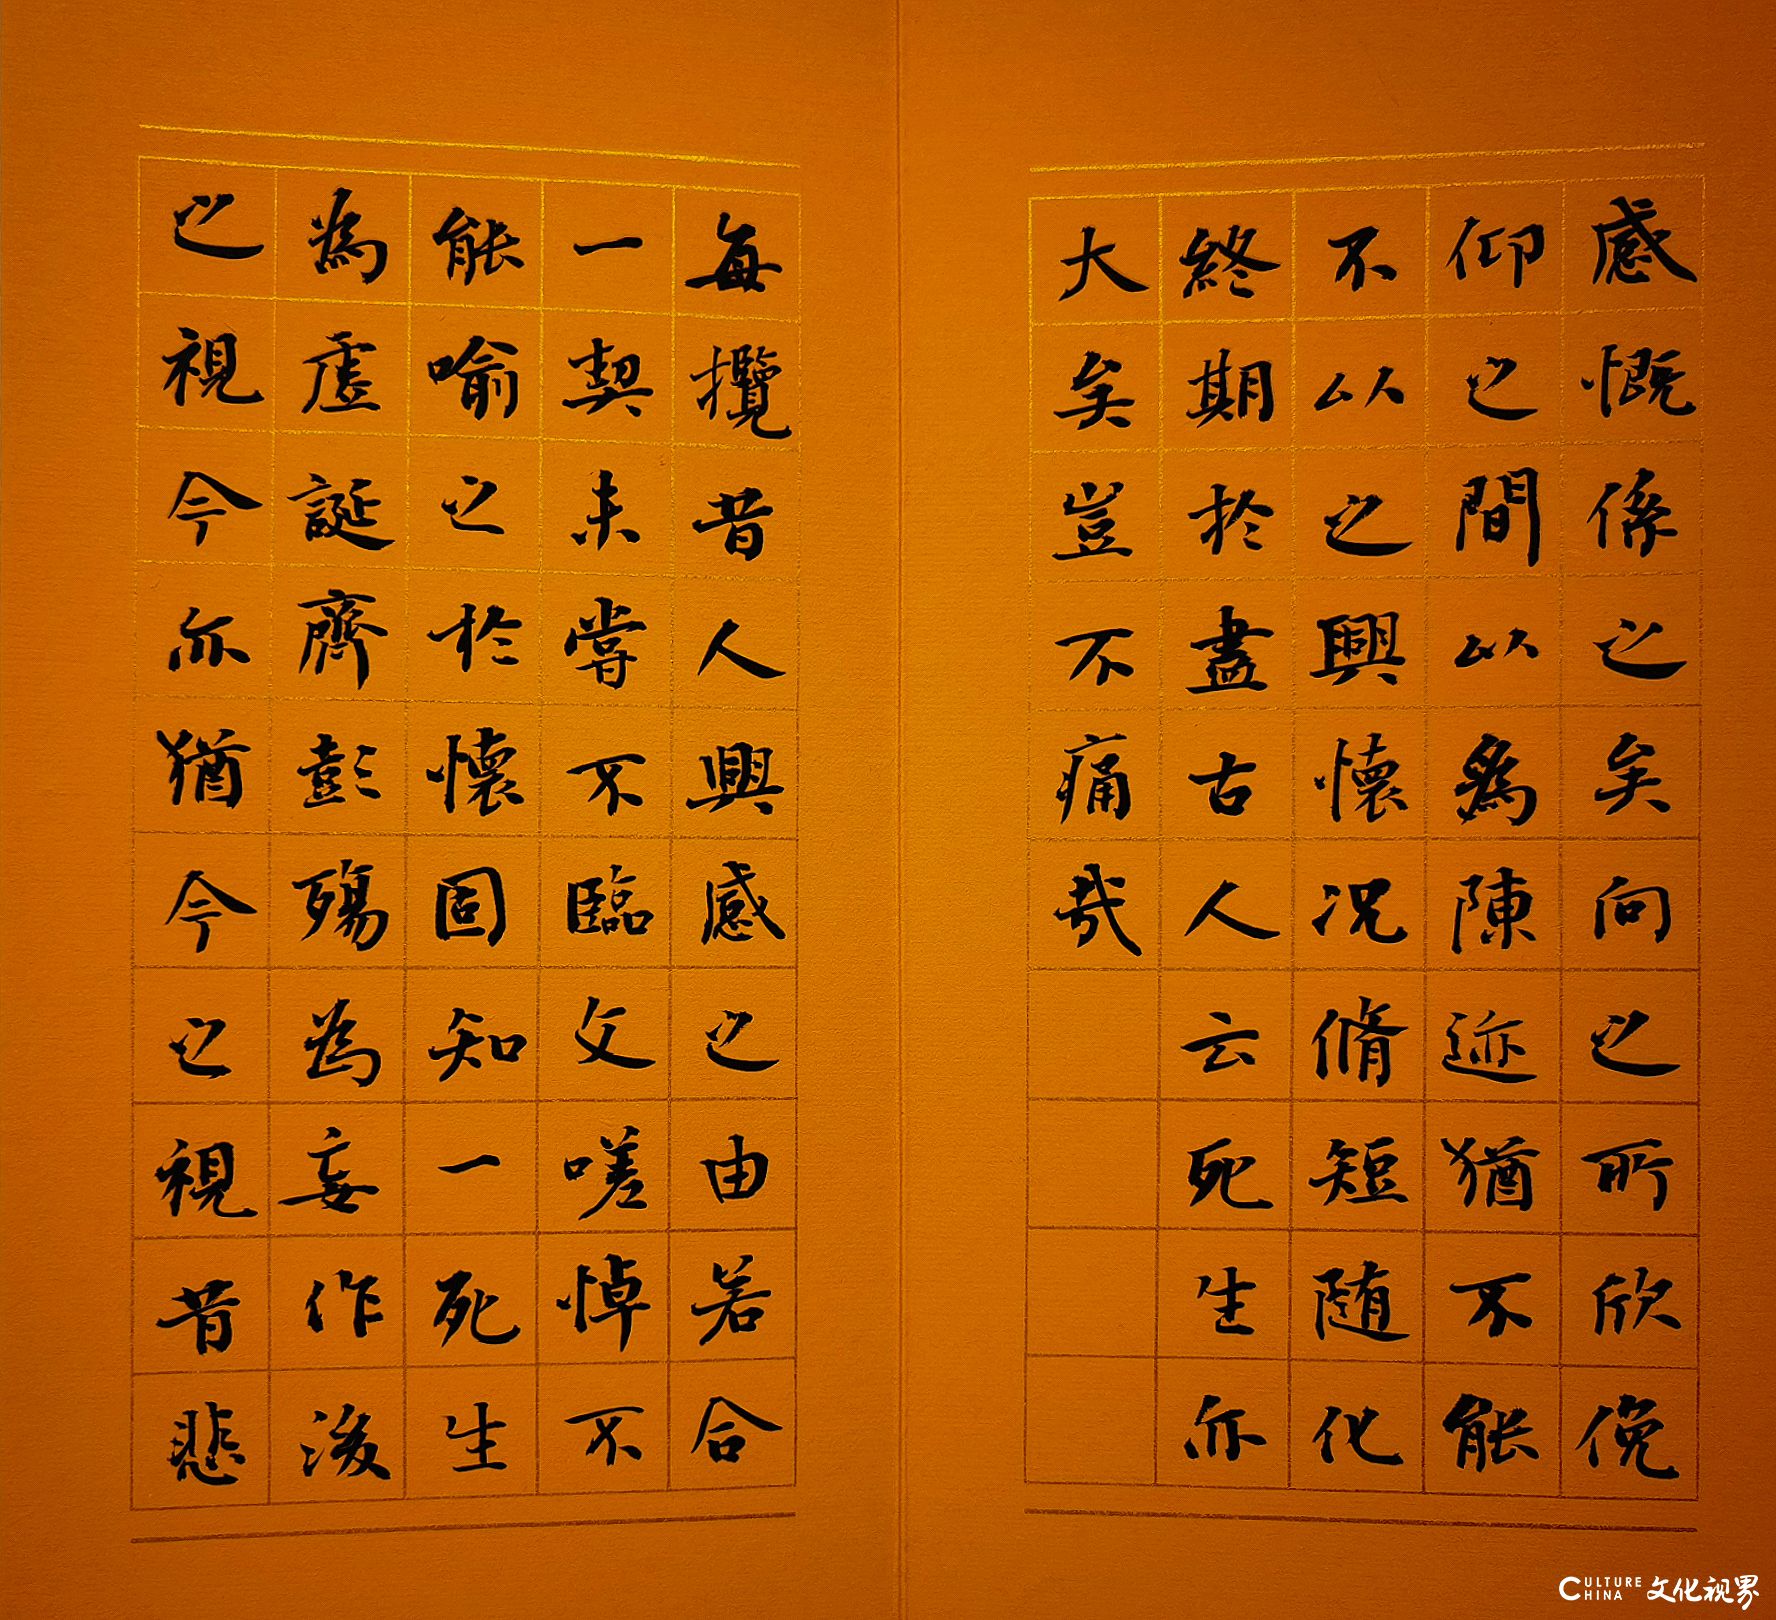 感慨係之矣向之所欣俛
仰之間以為陳迹猶不能
不以之興懷況脩短随化
終期於盡古人云死生亦
大矣豈不痛哉
每攬昔人興感之由若合
一契未嘗不臨文嗟悼不
能喻之於懷固知一死生
為虛誕齊彭殤為妄作後
之視今亦猶今之視昔悲
CULTURE CHINA 文化视界